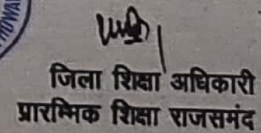 जिला शिक्षा अधिकारी
प्रारम्भिक शिक्षा राजसमंद